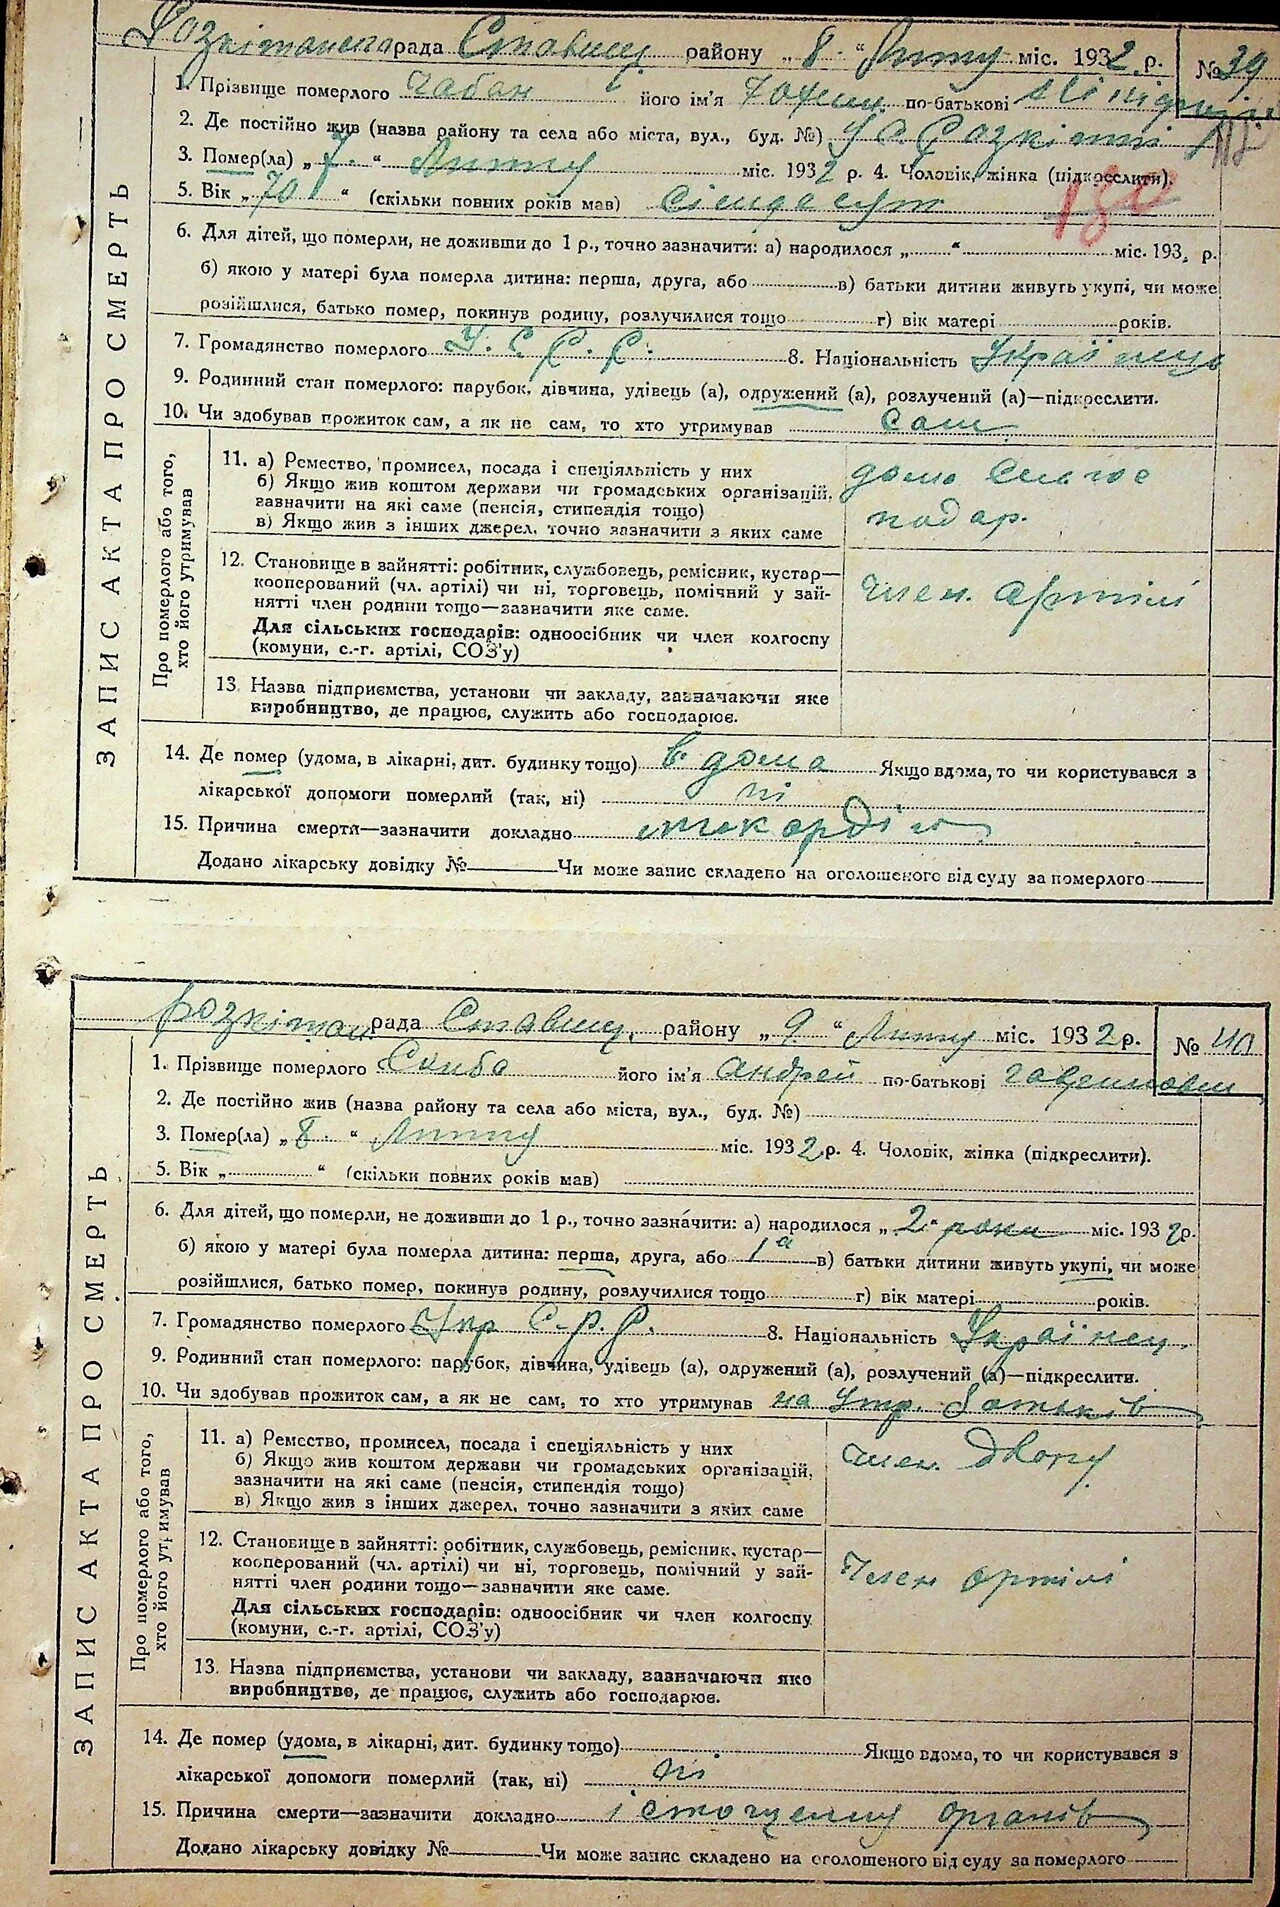 рада Ставищ. району „8.“ Липцу міс. 1932 р. №39
1. Прізвище померлого Чабан його ім'я по-батькові
2. Де постійно жив (назва району та села або міста, вул., буд. №) У с. Розкішні
3. Помер(ла) „7.“ міс. 1932 р. 4. Чоловік, жінка (підкреслити).
5. Вік „70“ (скільки повних років мав) сімдесят
6. Для дітей, що померли, не доживши до 1 р., точно зазначити: а) народилося „ “ міс. 193 р.
б) якою у матері була померла дитина: перша, друга, або в) батьки дитини живуть укупі, чи може
розійшлися, батько помер, покинув родину, розлучилися тощо г) вік матері років.
7. Громадянство померлого У. С. Р. Р. 8. Національність Українець
9. Родинний стан померлого: парубок, дівчина, удівець (а), одружений (а), розлучений (а)—підкреслити.
10. Чи здобував прожиток сам, а як не сам, то хто утримував сам
ЗАПИС АКТА ПРО СМЕРТЬ
Про померлого або того, хто його утримував
11. а) Ремество, промисел, посада і спеціяльність у них
б) Якщо жив коштом держави чи громадських організацій, зазначити на які саме (пенсія, стипендія тощо)
в) Якщо жив з інших джерел, точно зазначити з яких саме
12. Становище в зайнятті: робітник, службовець, ремісник, кустар—
кооперований (чл. артілі) чи ні, торговець, помічний у зай-
нятті член родини тощо—зазначити яке саме.
Для сільських господарів: одноосібник чи член колгоспу
(комуни, с.-г. артілі, СОЗ'у)
член. артілі
13. Назва підприємства, установи чи закладу, зазначаючи яке
виробництво, де працює, служить або господарює.
14. Де помер (удома, в лікарні, дит. будинку тощо) в дома Якщо вдома, то чи користувався з
лікарської допомоги померлий (так, ні) ні
15. Причина смерти—зазначити докладно
Додано лікарську довідку № Чи може запис складено на оголошеного від суду за померлого
рада Ставищ. району „9“ міс. 1932 р. № 40
1. Прізвище померлого його ім'я Андрей по-батькові
2. Де постійно жив (назва району та села або міста, вул., буд. №)
3. Помер(ла) „8.“ міс. 1932 р. 4. Чоловік, жінка (підкреслити).
5. Вік „ “ (скільки повних років мав)
6. Для дітей, що померли, не доживши до 1 р., точно зазначити: а) народилося „2“ роки міс. 1932 р.
б) якою у матері була померла дитина: перша, друга, або 1а в) батьки дитини живуть укупі, чи може
розійшлися, батько помер, покинув родину, розлучилися тощо г) вік матері років.
7. Громадянство померлого Укр С.Р.Р. 8. Національність Українец.
9. Родинний стан померлого: парубок, дівчина, удівець (а), одружений (а), розлучений (а)—підкреслити.
10. Чи здобував прожиток сам, а як не сам, то хто утримував на утр. батьків
ЗАПИС АКТА ПРО СМЕРТЬ
Про померлого або того, хто його утримував
11. а) Ремество, промисел, посада і спеціяльність у них
б) Якщо жив коштом держави чи громадських організацій,
зазначити на які саме (пенсія, стипендія тощо)
в) Якщо жив з інших джерел, точно зазначити з яких саме
член. двору
12. Становище в зайнятті: робітник, службовець, ремісник, кустар—
кооперований (чл. артілі) чи ні, торговець, помічний у зай-
нятті член родини тощо—зазначити яке саме.
Для сільських господарів: одноосібник чи член колгоспу
(комуни, с.-г. артілі, СОЗ'у)
Член артілі
13. Назва підприємства, установи чи закладу, зазначаючи яке
виробництво, де працює, служить або господарює.
14. Де помер (удома, в лікарні, дит. будинку тощо) Якщо вдома, то чи користувався з
лікарської допомоги померлий (так, ні) ні
15. Причина смерти—зазначити докладно органів
Додано лікарську довідку № Чи може запис складено на оголошеного від суду за померлого